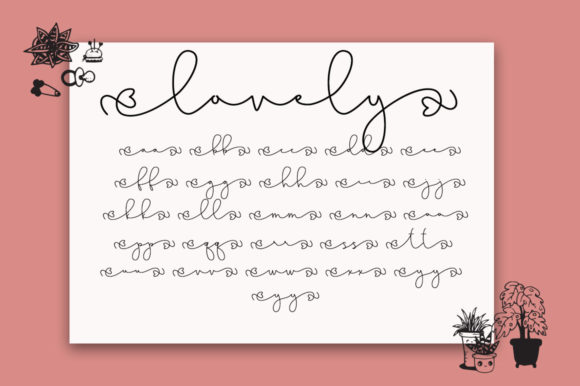 lovely
aa bb cc dd ee
ff gg hh ii jj
kk ll mm nn oo
pp qq rr ss tt
uu vv ww xx yy
yy